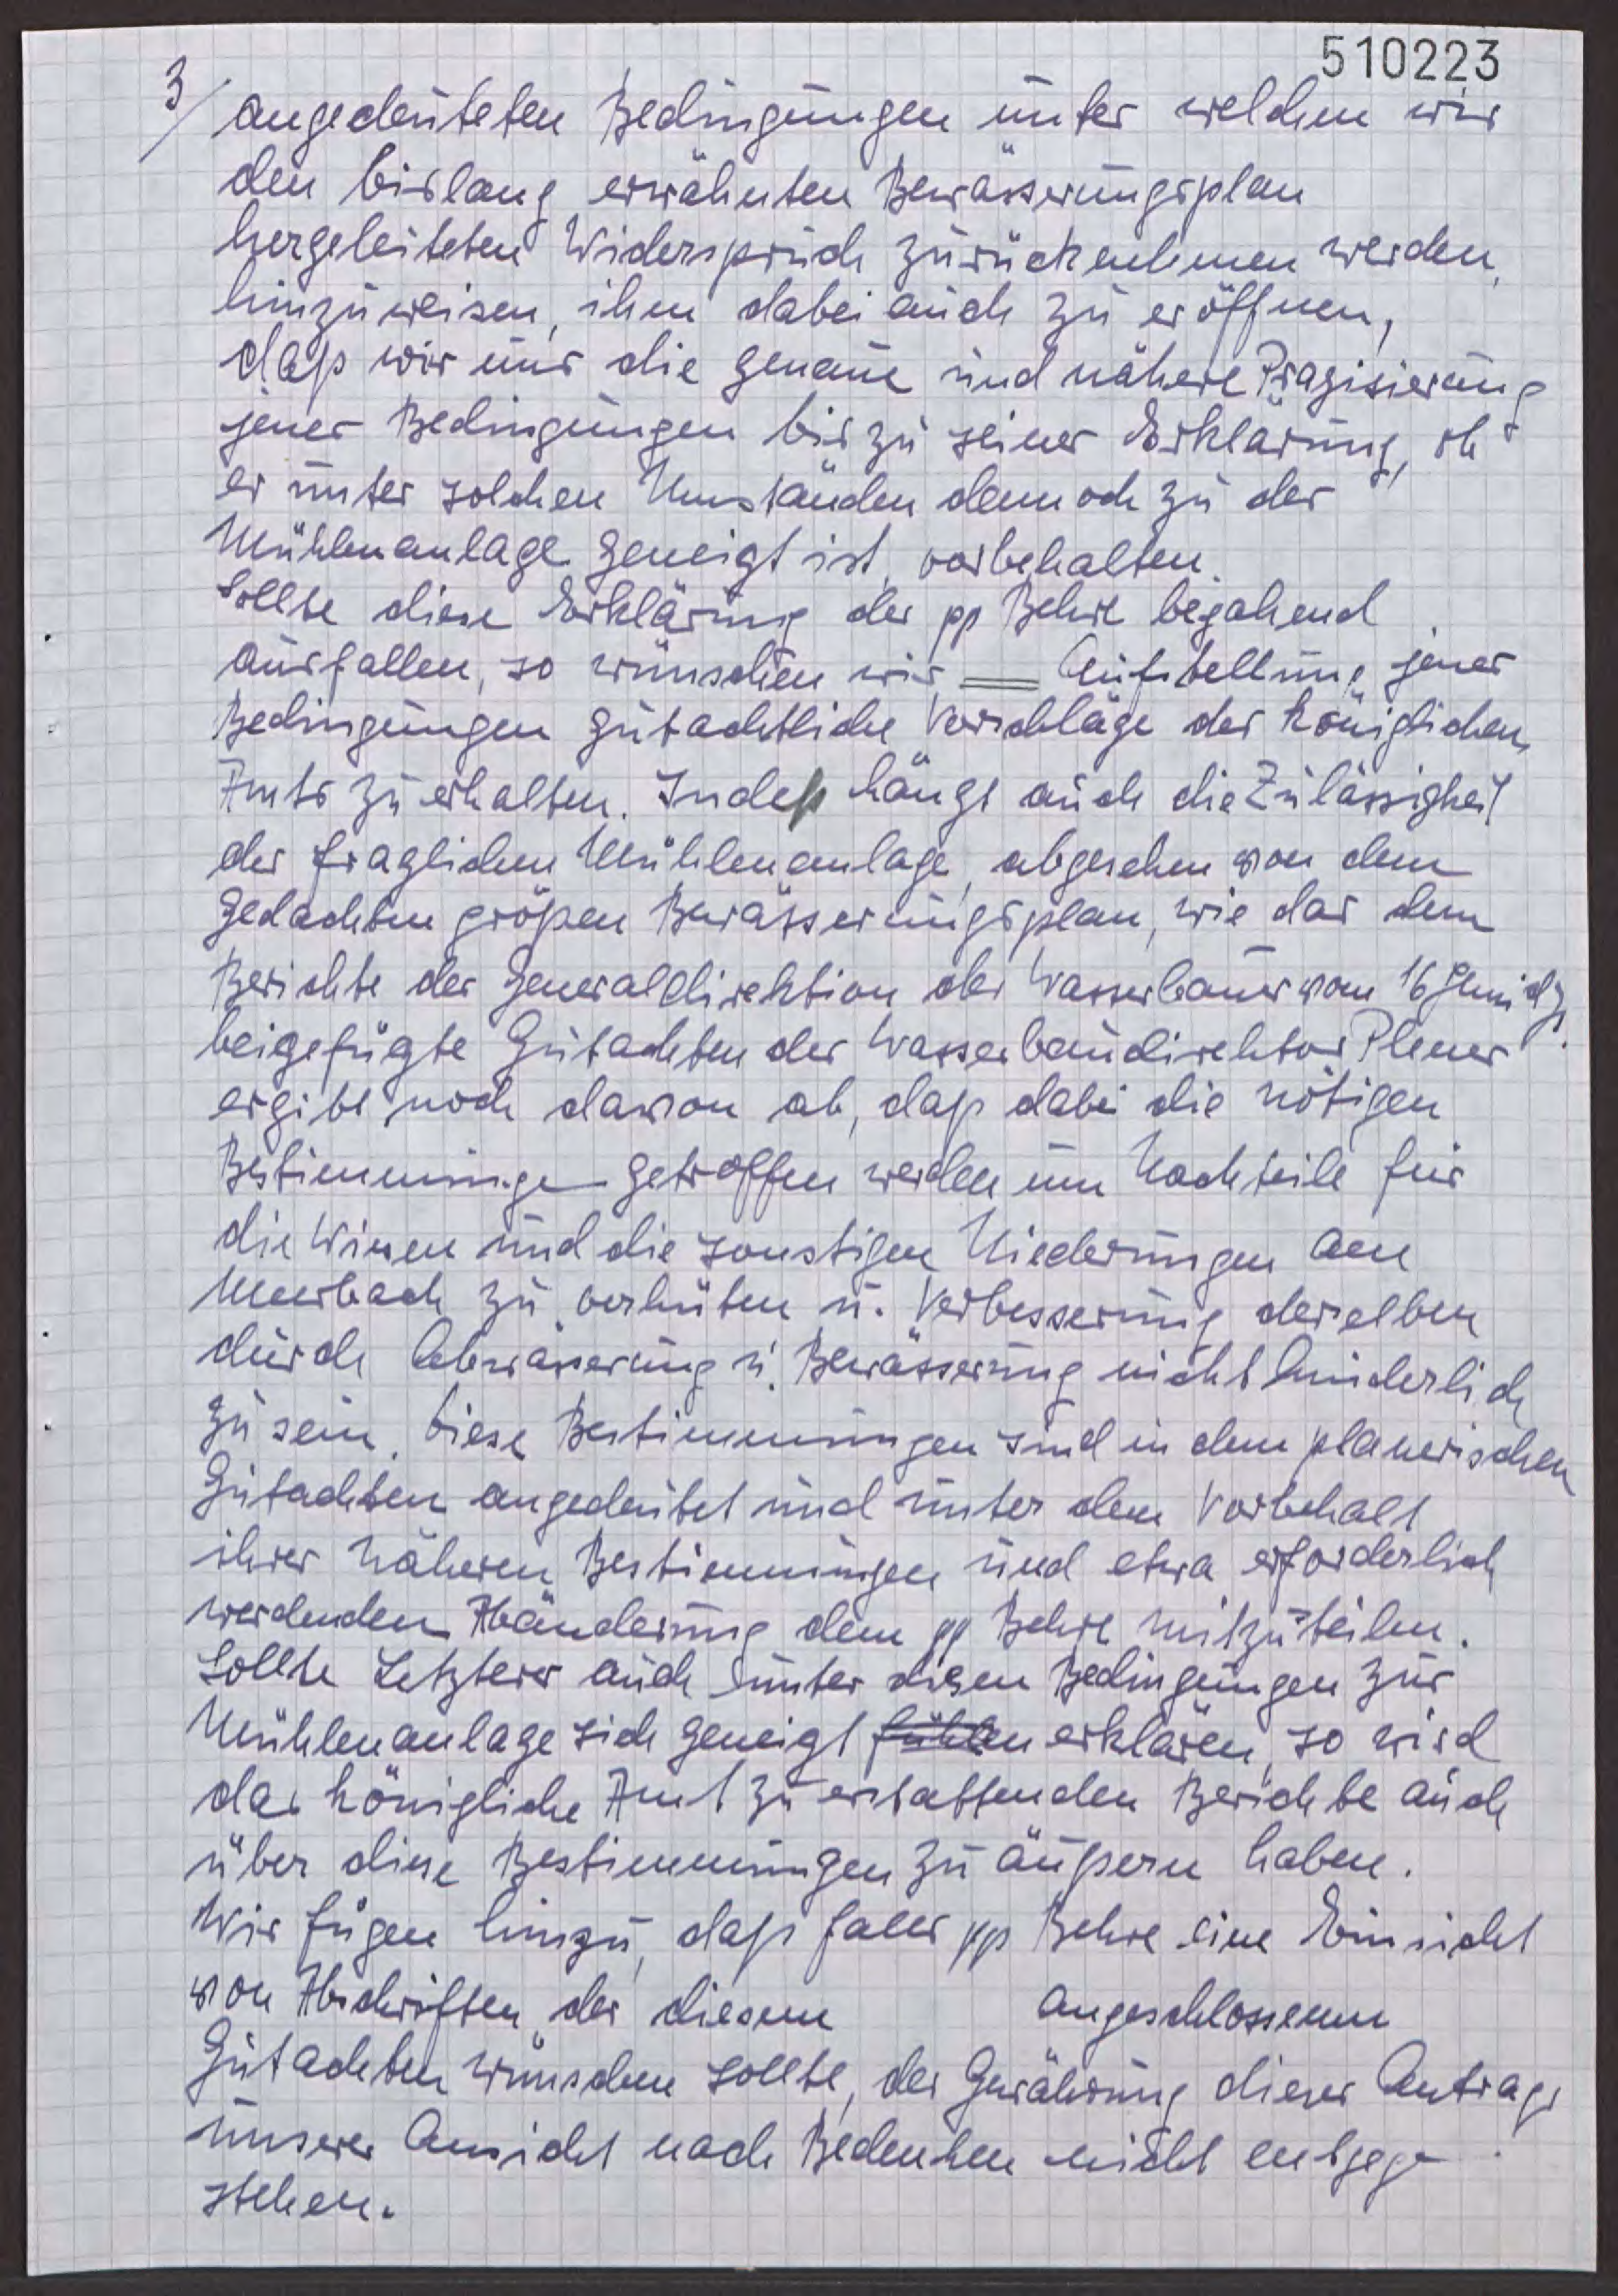 510223
3/ angedeuteten Bedingungen unter welchen wir
den bislang erwähnten Bewässerungsplan
hergeleiteten Widerspruch zurücknehmen werden,
hinzuweisen, ihm dabei auch zu eröffnen,
daß wir uns die genaue und nähere Präzisierung
jener Bedingungen bis zu seiner Erklärung, ob
er unter solchen Umständen dennoch zu der
Mühlenanlage geneigt ist, vorbehalten.
Sollte diese Erklärung des pp Behre bejahend
ausfallen, so wünschen wir __ Aufstellung jener
Bedingungen gutachtliche Vorschläge des königlichen
Amts zu erhalten. Indeß hängt auch die Zulässigkeit
der fraglichen Mühlenanlage, abgesehen von dem
gedachten größen Bewässerungsplan, wie das dem
Berichte der Generaldirektion des Wasserbaues vom 16 Juni djs.
beigefügte Gutachten des Wasserbaudirektor Plener
ergibt noch davon ab, daß dabei die nötigen
Bestimmungen getroffen werden um Nachteile für
die Wiesen und die sonstigen Niederungen am
Meerbach zu verhüten u. Verbesserung derselben
durch Abwässerung u. Bewässerung nicht hinderlich
zu sein. Diese Bestimmungen sind in dem planerischen
Gutachten angedeutet und unter dem Vorbehalt
ihrer näheren Bestimmungen und etwa erforderlich
werdenden Abänderung dem pp Behre mitzuteilen.
Sollte Letzterer auch unter diesen Bedingungen zur
Mühlenanlage sich geneigt fühlen erklären, so wird
das königliche Amt zu erstattenden Berichte auch
über diese Bestimmungen zu äußern haben.
Wir fügen hinzu, daß falls pp Behre eine Einsicht
von Abschriften der diesem angeschlossenen
Gutachten wünschen sollte, der Gewährung dieses Antrags
unserer Ansicht nach Bedenken nicht entgege
stehen.